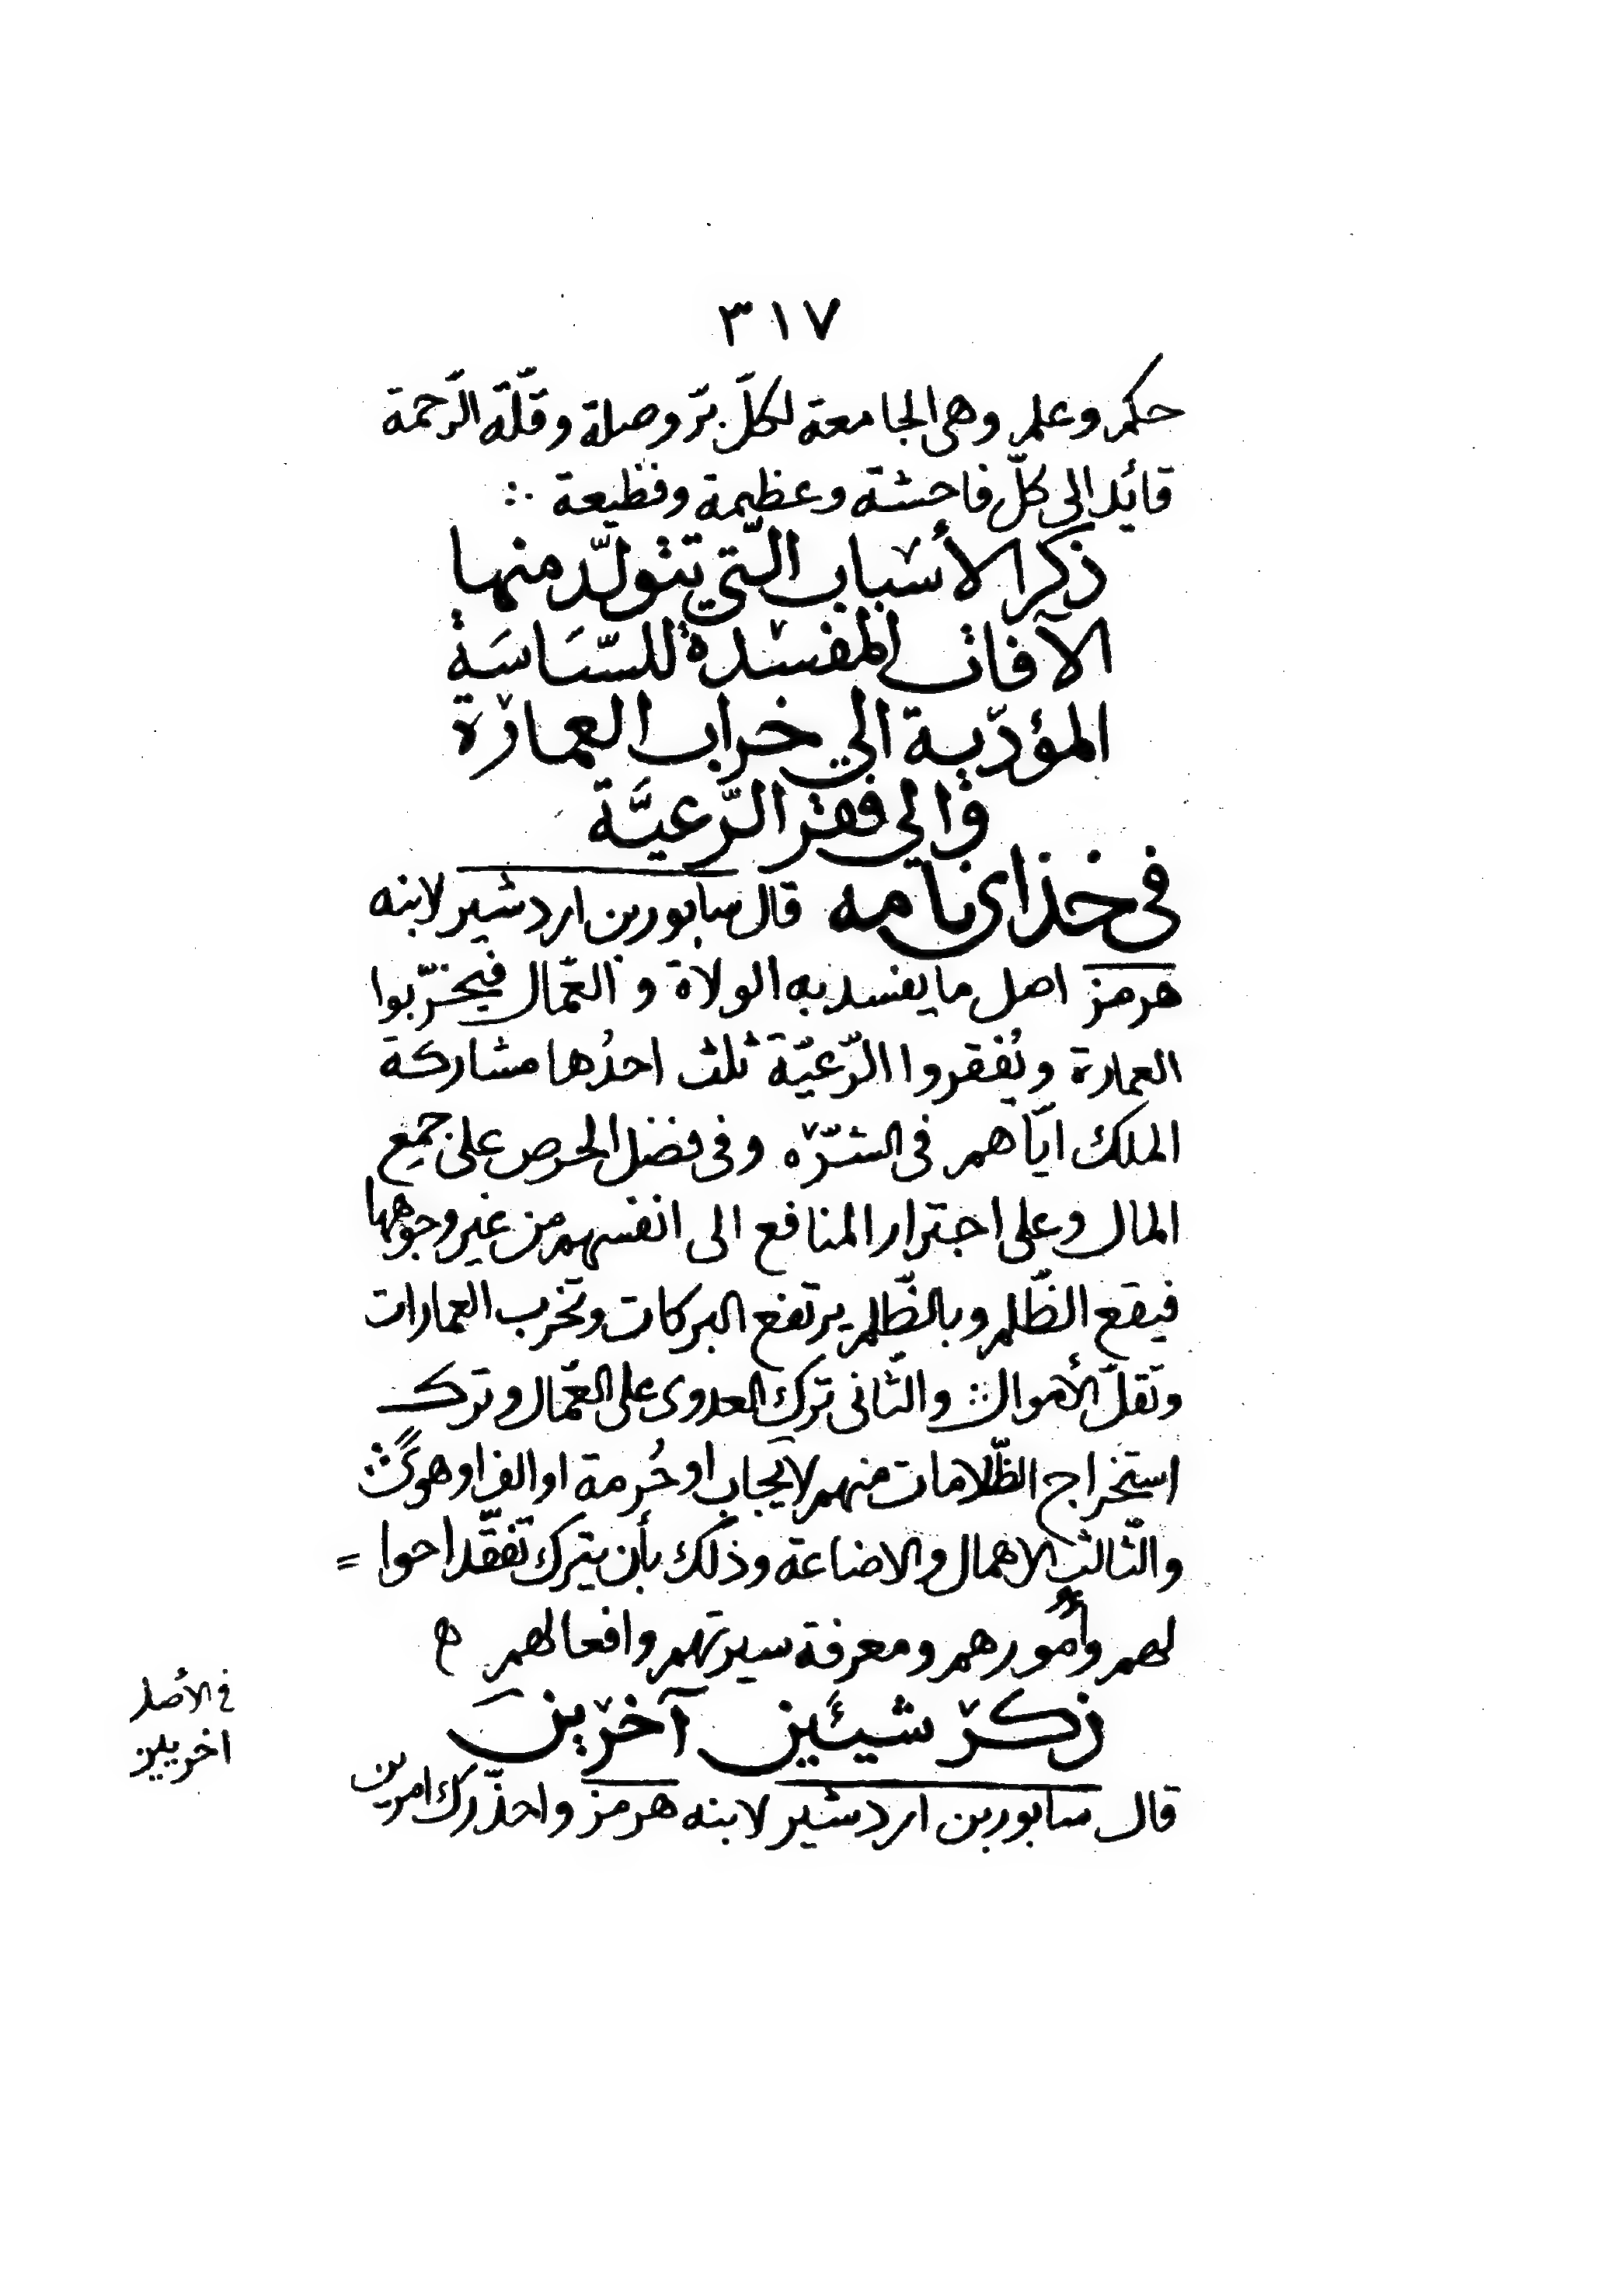 ٣١٧
حكم وعلم وهى الجامعة لكلّ برّ وصلة وقلّة الرّحمة
قائد الى كلّ فاحشة وعظيمة وفظيعة ∴
ذكر الأسباب الّتي تتولّد منها
الآفات المفسدة للسّاسَة
المؤدّية الي خراب العمارة
والي فقر الرّعيَّة
فى خذاى نامه قال سابور بن اردشير لابنه
هرمز اصل ما يفسد به الولاة و العمّال فيخرّبوا
العمارة ويُفقروا الرّعيّة ثلث احدُها مشاركة
الملك ايّاهم فى الشّره وفى فضل الحرص على جميع
المال وعلى اجترار المنافع الى انفسهم من غير وجوهها
فيقع الظّلم وبالظّلم يرتفع البركات وتخرب العمارات
وتقلّ الأموال ∴ والثّانى ترك العدوى على العمّال وترك
استخراج الظّلامات منهم لايجاب او حُرمة او الف او هوىً ∴
والثّالث الاهمال والاضاعة وذلك بأن يترك تفقّد احوا =
لهم وأمورهم ومعرفة سيرتهم وافعالهم ه
ذكر شيئين آخرينَ
قال سابور بن اردشير لابنه هرمز واحذّرك امرين
في الأصل
اخريين